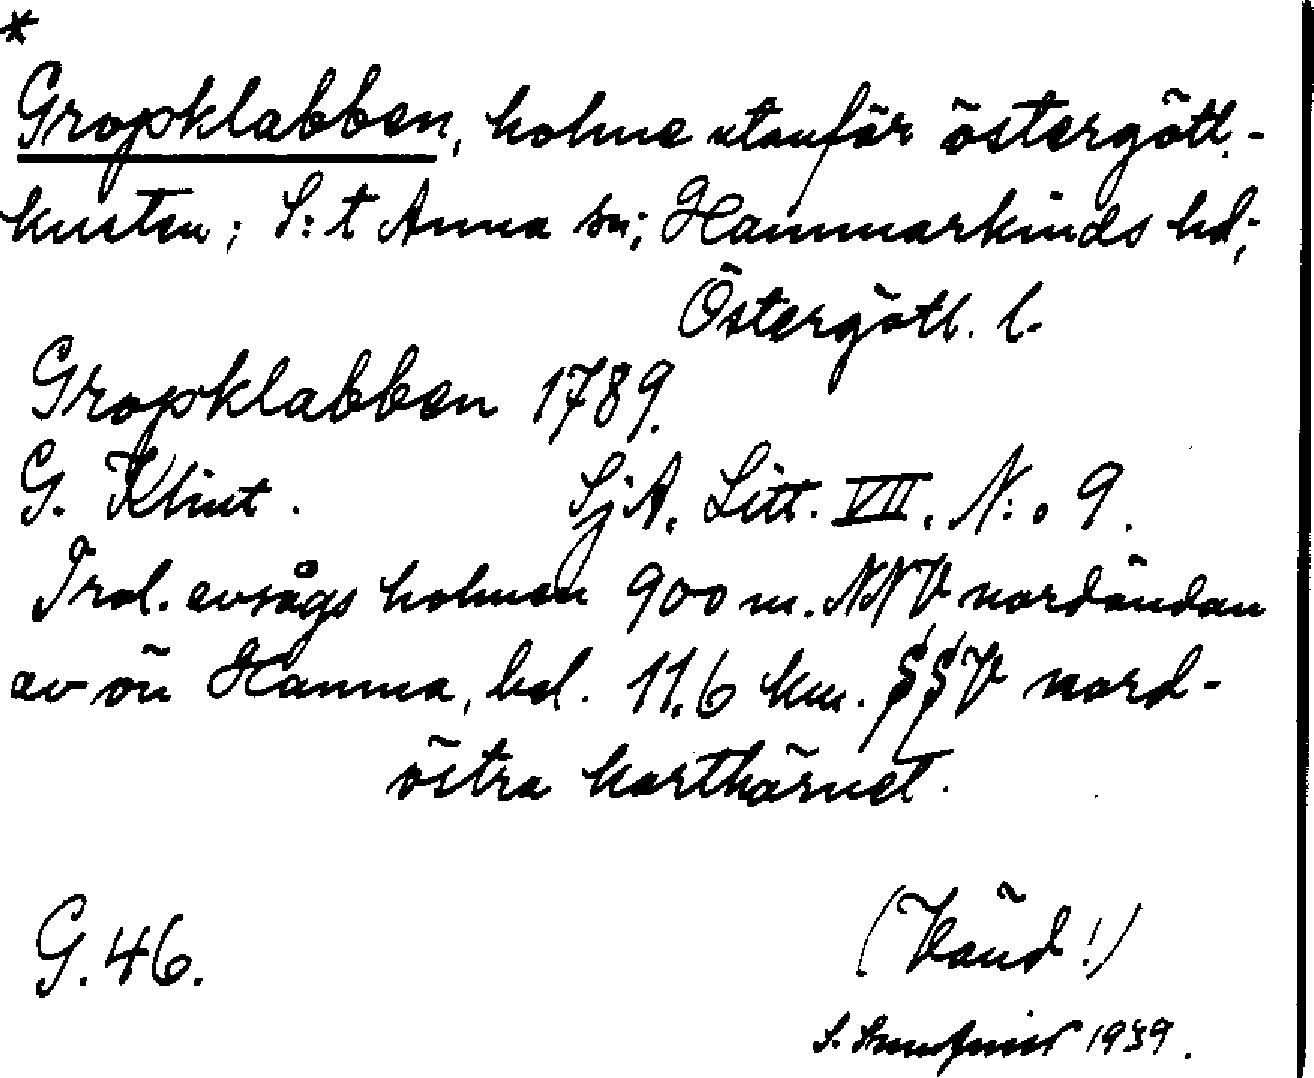 *
Gropklabben, holme utanför östergötl.-
kusten; S:t Anna sn; Hammarkinds hd;
Östergötl. l.
Gropklabben 1789.
G. Klint. SjA. Litt. VII. N:o 9.
Trol. avsågs holmen 900 m. NNV nordändan
av ön Hamna, bel. 11,6 km. SSV nord-
östra karthörnet.
G. 46.
(Vänd!)
S. 1939.